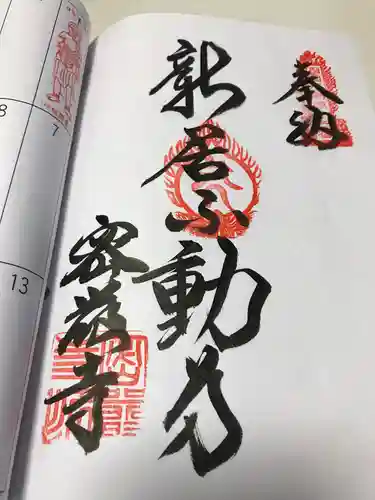 奉納
新居不動尊
密嚴寺
8
7
13